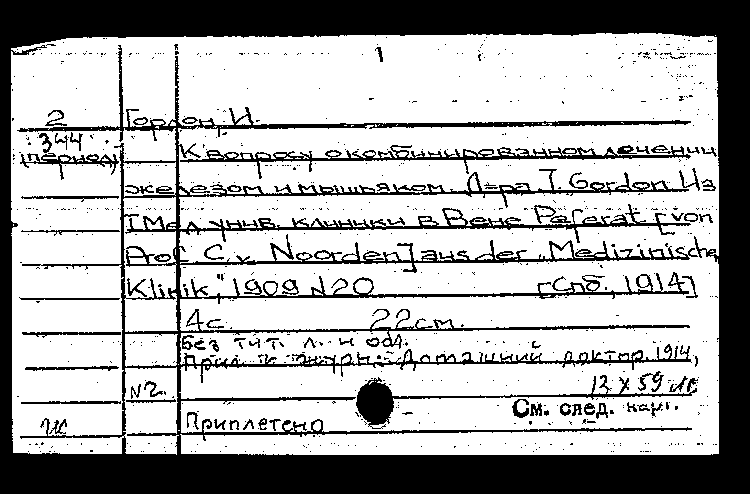 1
2 Гордон, И.
344
(период) К вопросу о комбинированном лечении
железом и мышьяком. Д-ра I. Gordon Из
I Мед. унив. клиники в Вене Referat [von
Prof C. v. Noorden] aus der „Medizinische
Klinik", 1909 №20 [Спб., 1914]
4с. 22см.
Без тит. л. и обл.
Прил. к журн.: Домашний доктор. 1914,
№2. 12 X 59
См. след. карт.
Приплетено